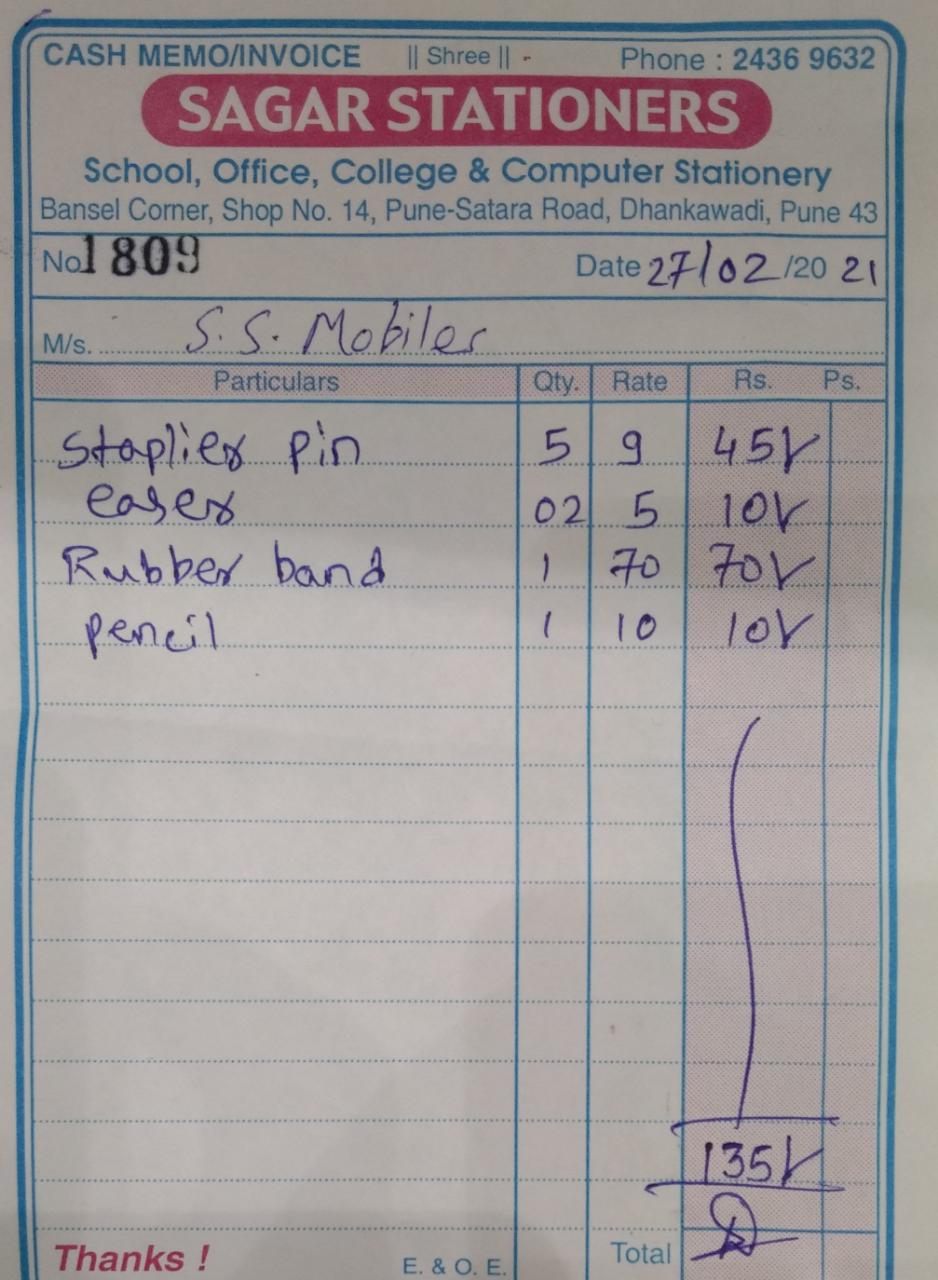 CASH MEMO/INVOICE || Shree || Phone : 2436 9632
SAGAR STATIONERS
School, Office, College & Computer Stationery
Bansel Corner, Shop No. 14, Pune-Satara Road, Dhankawadi, Pune 43
No. 1809 Date 27/02/2021
M/s. S.S. Mobiles
Particulars Qty. Rate Rs. Ps.
Staplier pin 5 9 45/
easer 02 5 10/
Rubber band 1 70 70/
pencil 1 10 10/
135/
Thanks ! E. & O. E. Total